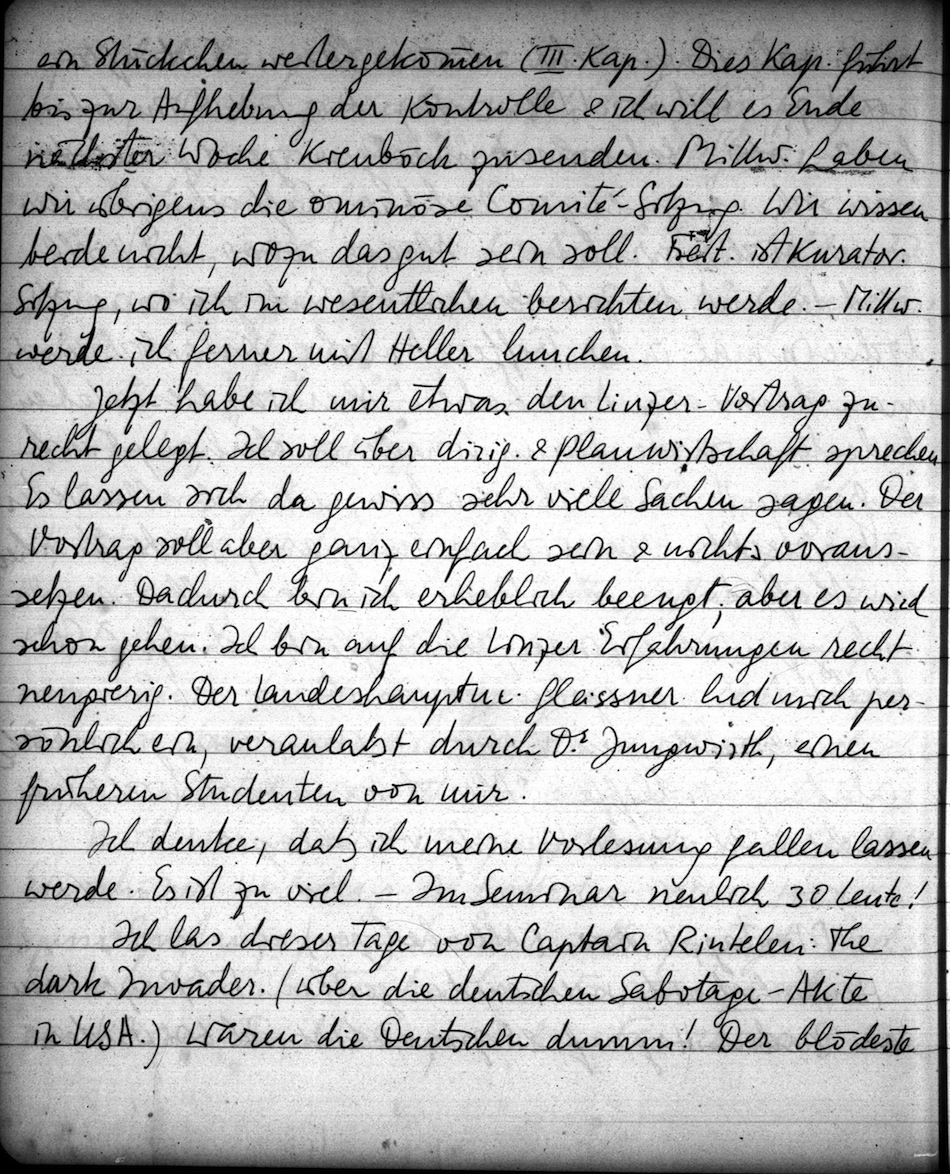 ein Stückchen weitergekom̅en (III. Kap.). Dies Kap. führt
bis zur Aufhebung der Kontrolle & ich will es Ende
nächster Woche Kienböck zusenden. Mittw. haben
wir übrigens die ominöse Comité-Sitzung. Wir wissen
beide nicht, wozu das gut sein soll. Freit. ist Kurator.
Sitzung, wo ich im wesentlichen berichten werde. – Mittw.
werde ich ferner mit Heller lunchen.
Jetzt habe ich mir etwas den Linzer-Vortrag zu-
recht gelegt. Ich soll über dirig. & Planwirtschaft sprechen
Es lassen sich da gewiss sehr viele Sachen sagen. Der
Vortrag soll aber ganz einfach sein & nichts voraus-
setzen. Dadurch bin ich erheblich beengt, aber es wird
schon gehen. Ich bin auf die Linzer Erfahrungen recht
neugierig. Der Landeshauptm. Gleissner lud mich per-
sönlich ein, veranlaßt durch Dr Jungwirth, einen
früheren Studenten von mir.
Ich denke, daß ich meine Vorlesung fallen lassen
werde. Es ist zu viel. – Im Seminar neulich 30 Leute!
Ich las dieser Tage von Captain Rintelen: The
dark Invader. (über die deutschen Sabotage-Akte
in USA.) Waren die Deutschen dumm! Der blödeste